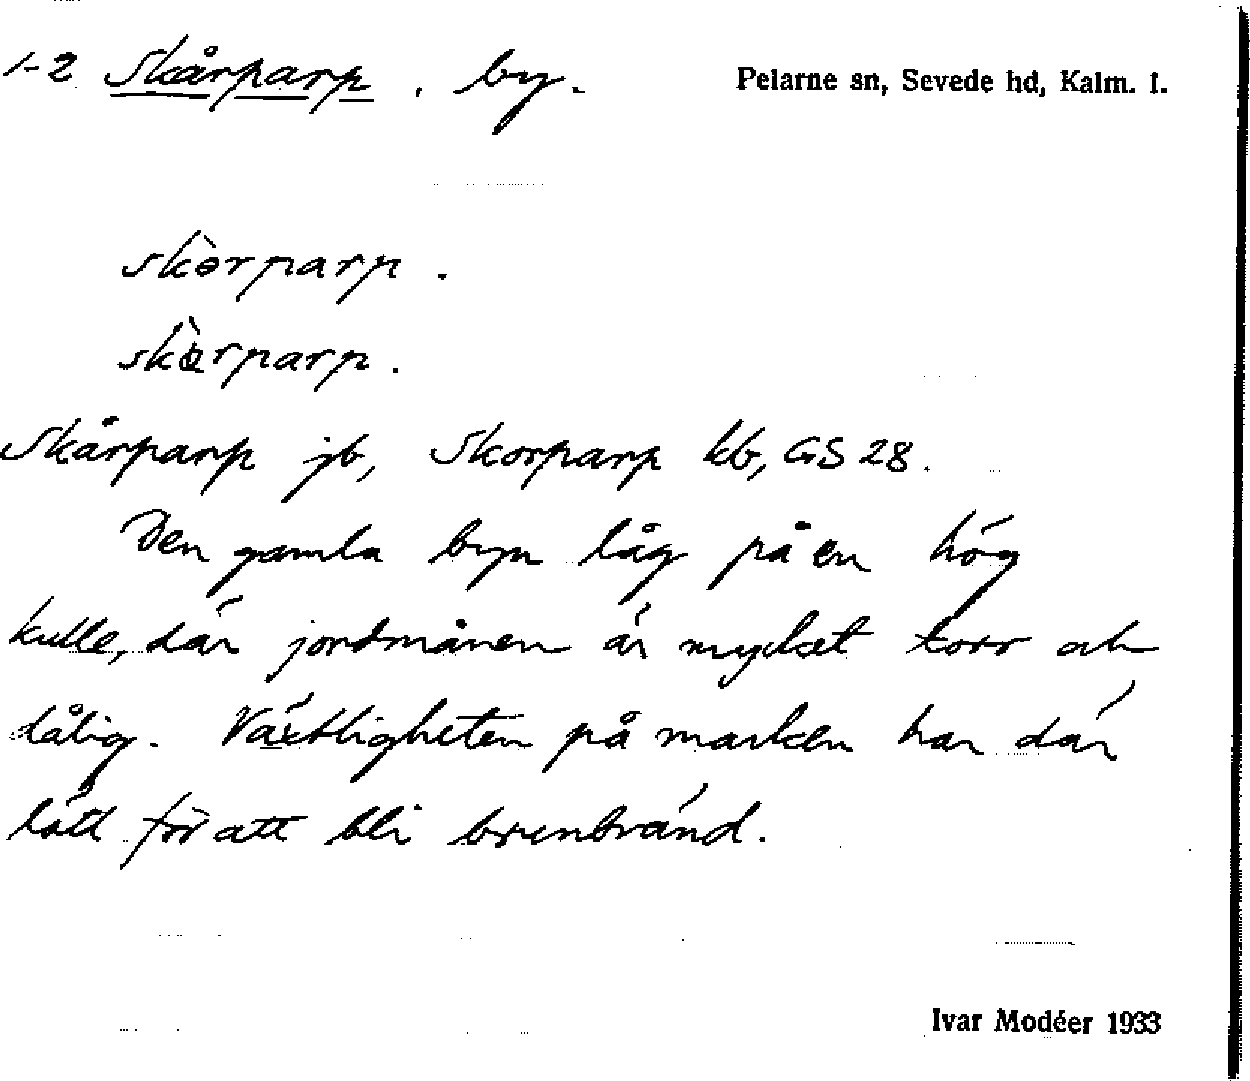 1-2 Skårparp, by. Pelarne sn, Sevede hd, Kalm. l.
skòrparp.
Skårparp jb, Skorparp kb, GS 28.
Den gamla byn låg på en hög
kulle, där jordmånen är mycket torr och
dålig. Växtligheten på marken har där
lätt för att bli brunbränd.
Ivar Modéer 1933